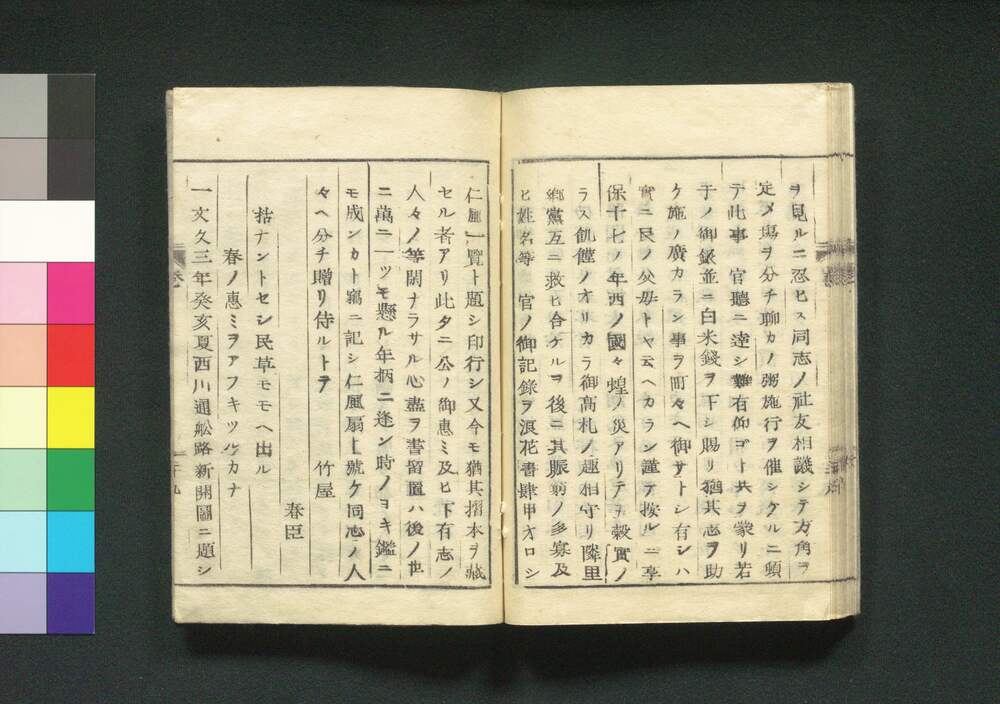 ヲ見ルニ忍ヒス同志ノ社友相議シテ方角ヲ
定メ場ヲ分チ聊カノ粥施行ヲ催シケルニ頓
テ此事　官聴ニ達シ難有仰コト共ヲ蒙リ若
干ノ御銀並ニ白米錢ヲ下シ賜リ猶其志ヲ助
ケ施ノ廣カラン事ヲ町々ヘ御サトシ有シハ
實ニ民ノ父母トヤ云ヘカラン謹テ按ルニ享
保十七ノ年西ノ國々蝗ノ災アリテヲ穀實ノ
ラス飢饉ノオリカラ御高札ノ趣相守リ隣里
郷黨互ニ救ヒ合ケルヲ後ニ其賑窮ノ多寡及
ヒ姓名等　官ノ御記録ヲ浪花書肆甲才ロシ
仁風一覽ト題シ印行シ又今モ猶其摺本ヲ藏
セル者アリ此タニ公ノ御惠ミ及ヒ下有志ノ
人々ノ等閑ナラサル心盡ヲ書留置ハ後ノ世
ニ萬ニ一ッモ懸ル年柄ニ逢ン時ノヨキ鑑ニ
モ成ンカト竊ニ記シ仁風扇ト號ケ同志ノ人
々ヘ分チ贈リ侍ルトテ
竹屋　春臣
枯ナントセシ民草モモヘ出ル
春ノ惠ミヲアフキツルカナ
一 文久三年癸亥夏西川通舩路新開圖ニ題シ